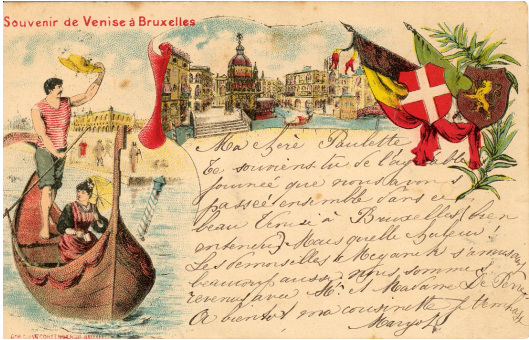 Souvenir de Venise à Bruxelles
Ma chère Paulette
Te souviens tu de l'agréable
journée que nous avons
passée ensemble dans ce
beau Venise à Bruxelles (bien
entendu) Mais quelle chaleur!
Les demoiselles s'amusent
beaucoup aussi, nous sommes
revenus avec Mr. et Madame De
A bientôt ma cousinette je t'embrasse
Margot